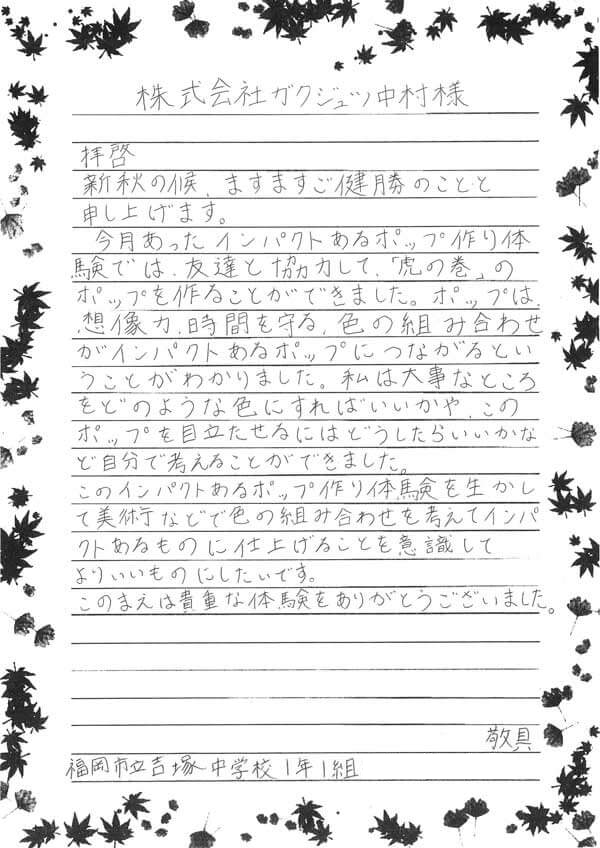 株式会社ガクジュツ中村様
拝啓
新秋の候、ますますご健勝のことと
申し上げます。
今月あったインパクトあるポップ作り体
験では、友達と協力して、「虎の巻」の
ポップを作ることができました。ポップは、
想像力、時間を守る、色の組み合わせ
がインパクトあるポップにつながるとい
うことがわかりました。私は大事なところ
をどのような色にすればいいかや、この
ポップを目立たせるにはどうしたらいいかな
ど自分で考えることができました。
このインパクトあるポップ作り体験を生かし
て美術などで色の組み合わせを考えてインパ
クトあるものに仕上げることを意識して
よりいいものにしたいです。
このまえは貴重な体験をありがとうございました。
敬具
福岡市立吉塚中学校1年1組